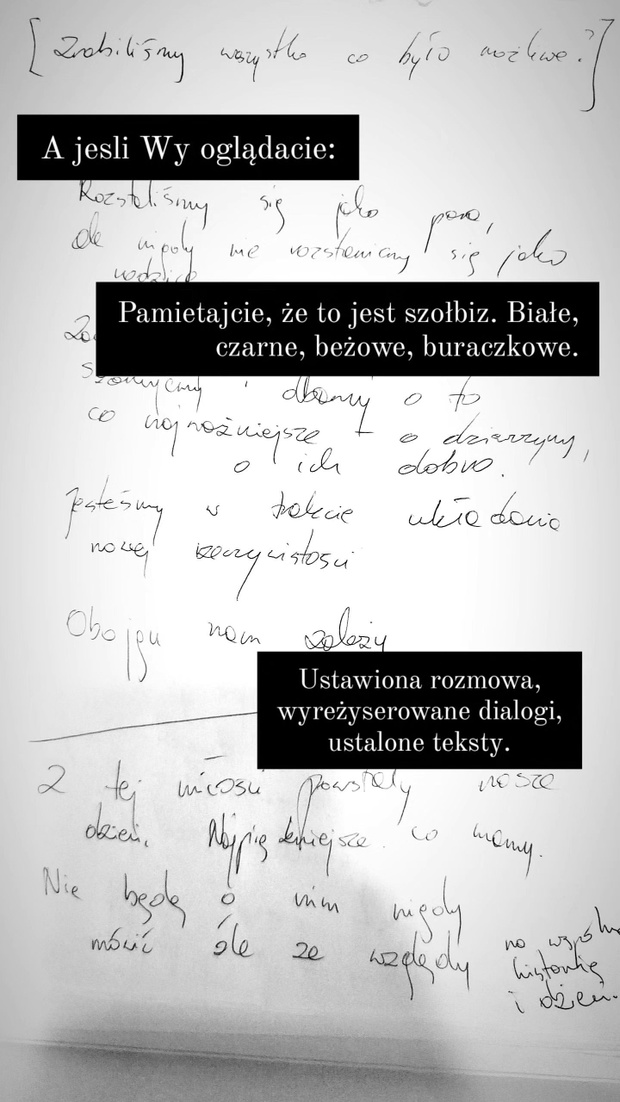 [Zrobiliśmy wszystko co było możliwe?]
A jesli Wy oglądacie:
Rozstaliśmy się jako para,
ale nigdy nie rozstaniemy się jako
rodzice
Pamietajcie, że to jest szołbiz. Białe,
czarne, beżowe, buraczkowe.
i dbamy o to
co najważniejsze - o dziewczyny,
o ich dobro.
Jesteśmy w trakcie układania
nowej rzeczywistości
Obojgu nam zależy
Ustawiona rozmowa,
wyreżyserowane dialogi,
ustalone teksty.
Z tej miłości powstały nasze
dzieci. Najpiękniejsze co mamy.
Nie będę o nim nigdy
mówić źle ze względu na wspólną
historię
i dzieci.